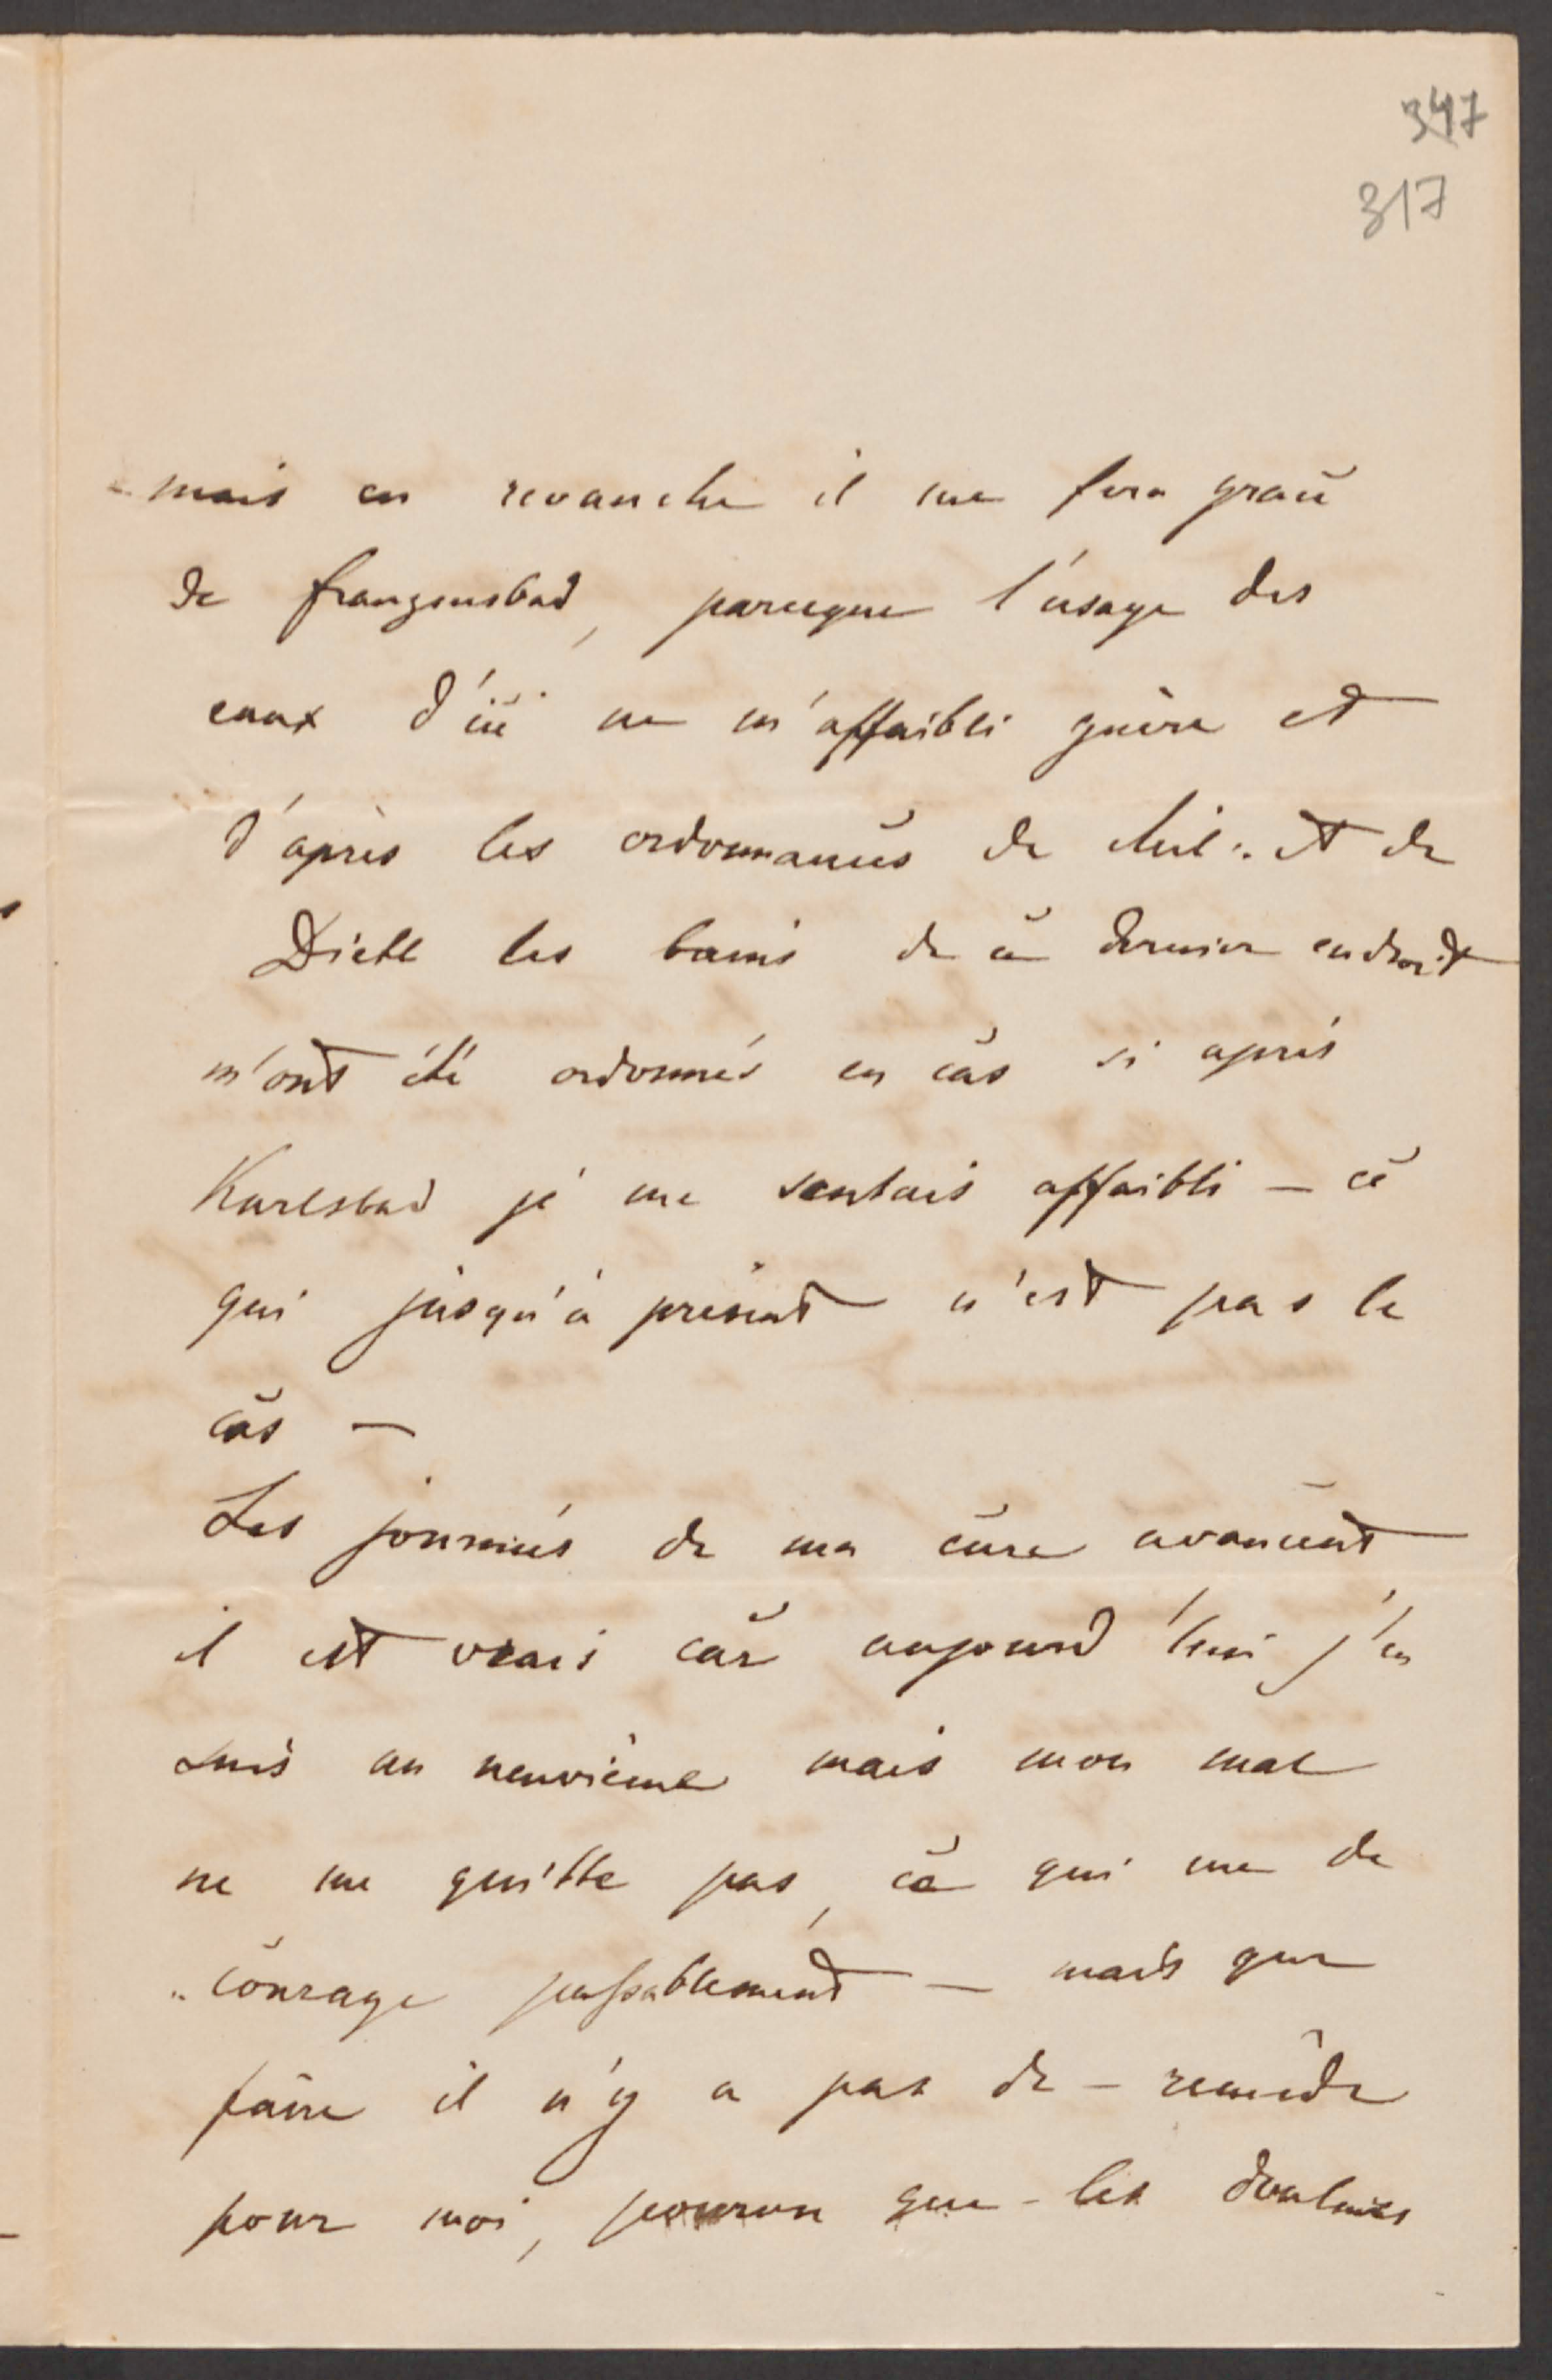 347
317
mais en revanche il me fera grace
de franzensbad, parceque l'usage des
eaux d'ici ne m'affaibli guère et
d'après les ordonnances de et de
Dietl les bains de ce dernier endroit
m'ont été ordonnés en cas si après
Karlsbad je me sentais affaibli — ce
qui jusqu'à présent n'est pas le
cas —
Les journées de ma cure avancent
il est vrais car aujourd'hui j'en
suis au neuvième mais mon mal
ne me quitte pas, ce qui me de
„courage passablement — mais que
faire il n'y a pas de – remède
pour moi, pourvu que – les douleurs